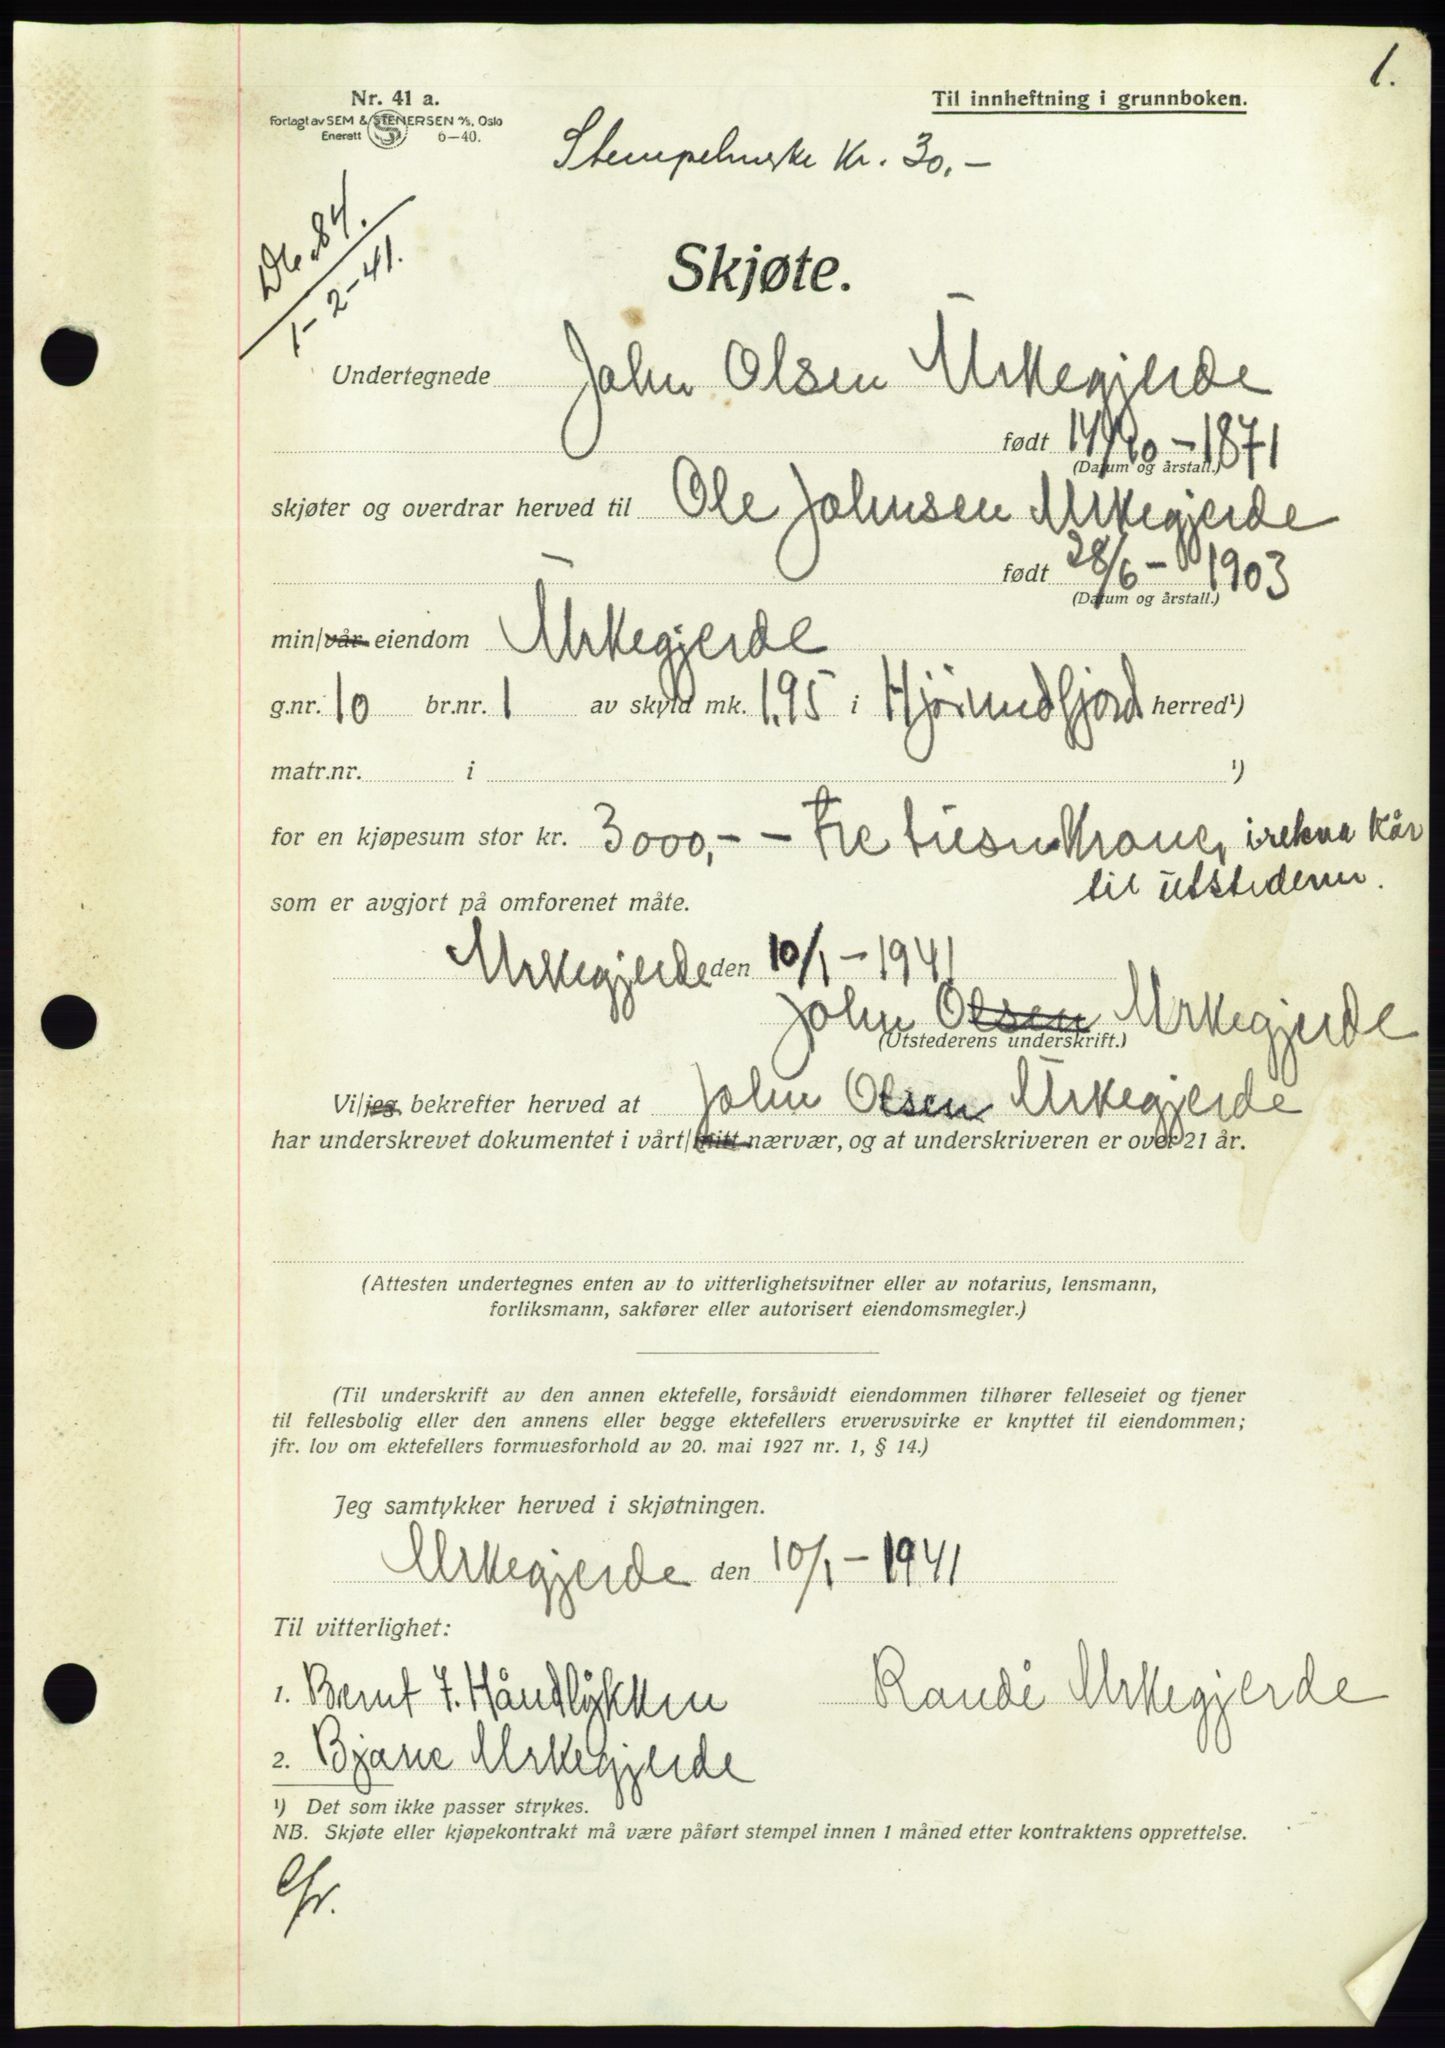 1.
Nr. 41 a.
Til innheftning i grunnboken.
Forlagt av SEM & STENERSEN A/S, Oslo
Enerett 6—40.
Stempelmerke kr. 30,-
Db. 84.
1-2-41.
Skjøte.
Undertegnede John Olsen Urkegjerde
født 14/10 - 1871
(Datum og årstall.)
skjøter og overdrar herved til Ole Johnsen Urkegjerde
født 28/6 - 1903
(Datum og årstall.)
min/vår eiendom Urkegjerde
g.nr. 10 br.nr. 1 av skyld mk. 1,95 i Hjørundfjord herred¹)
matr.nr. i ¹)
for en kjøpesum stor kr. 3000,- - Tre tusen krone, irekna kår
til utstederen.
som er avgjort på omforenet måte.
Urkegjerde den 10/1 - 1941
John Olsen Urkegjerde
(Utstederens underskrift.)
Vi/jeg bekrefter herved at John Olsen Urkegjerde
har underskrevet dokumentet i vårt/mitt nærvær, og at underskriveren er over 21 år.
(Attesten undertegnes enten av to vitterlighetsvitner eller av notarius, lensmann,
forliksmann, sakfører eller autorisert eiendomsmegler.)
(Til underskrift av den annen ektefelle, forsåvidt eiendommen tilhører felleseiet og tjener
til fellesbolig eller den annens eller begge ektefellers ervervsvirke er knyttet til eiendommen;
jfr. lov om ektefellers formuesforhold av 20. mai 1927 nr. 1, § 14.)
Jeg samtykker herved i skjøtningen.
Urkegjerde den 10/1 - 1941
Til vitterlighet:
1. Bernt J. Håndlykken Randi Urkegjerde
2. Bjarne Urkegjerde
¹) Det som ikke passer strykes.
NB. Skjøte eller kjøpekontrakt må være påført stempel innen 1 måned etter kontraktens opprettelse.